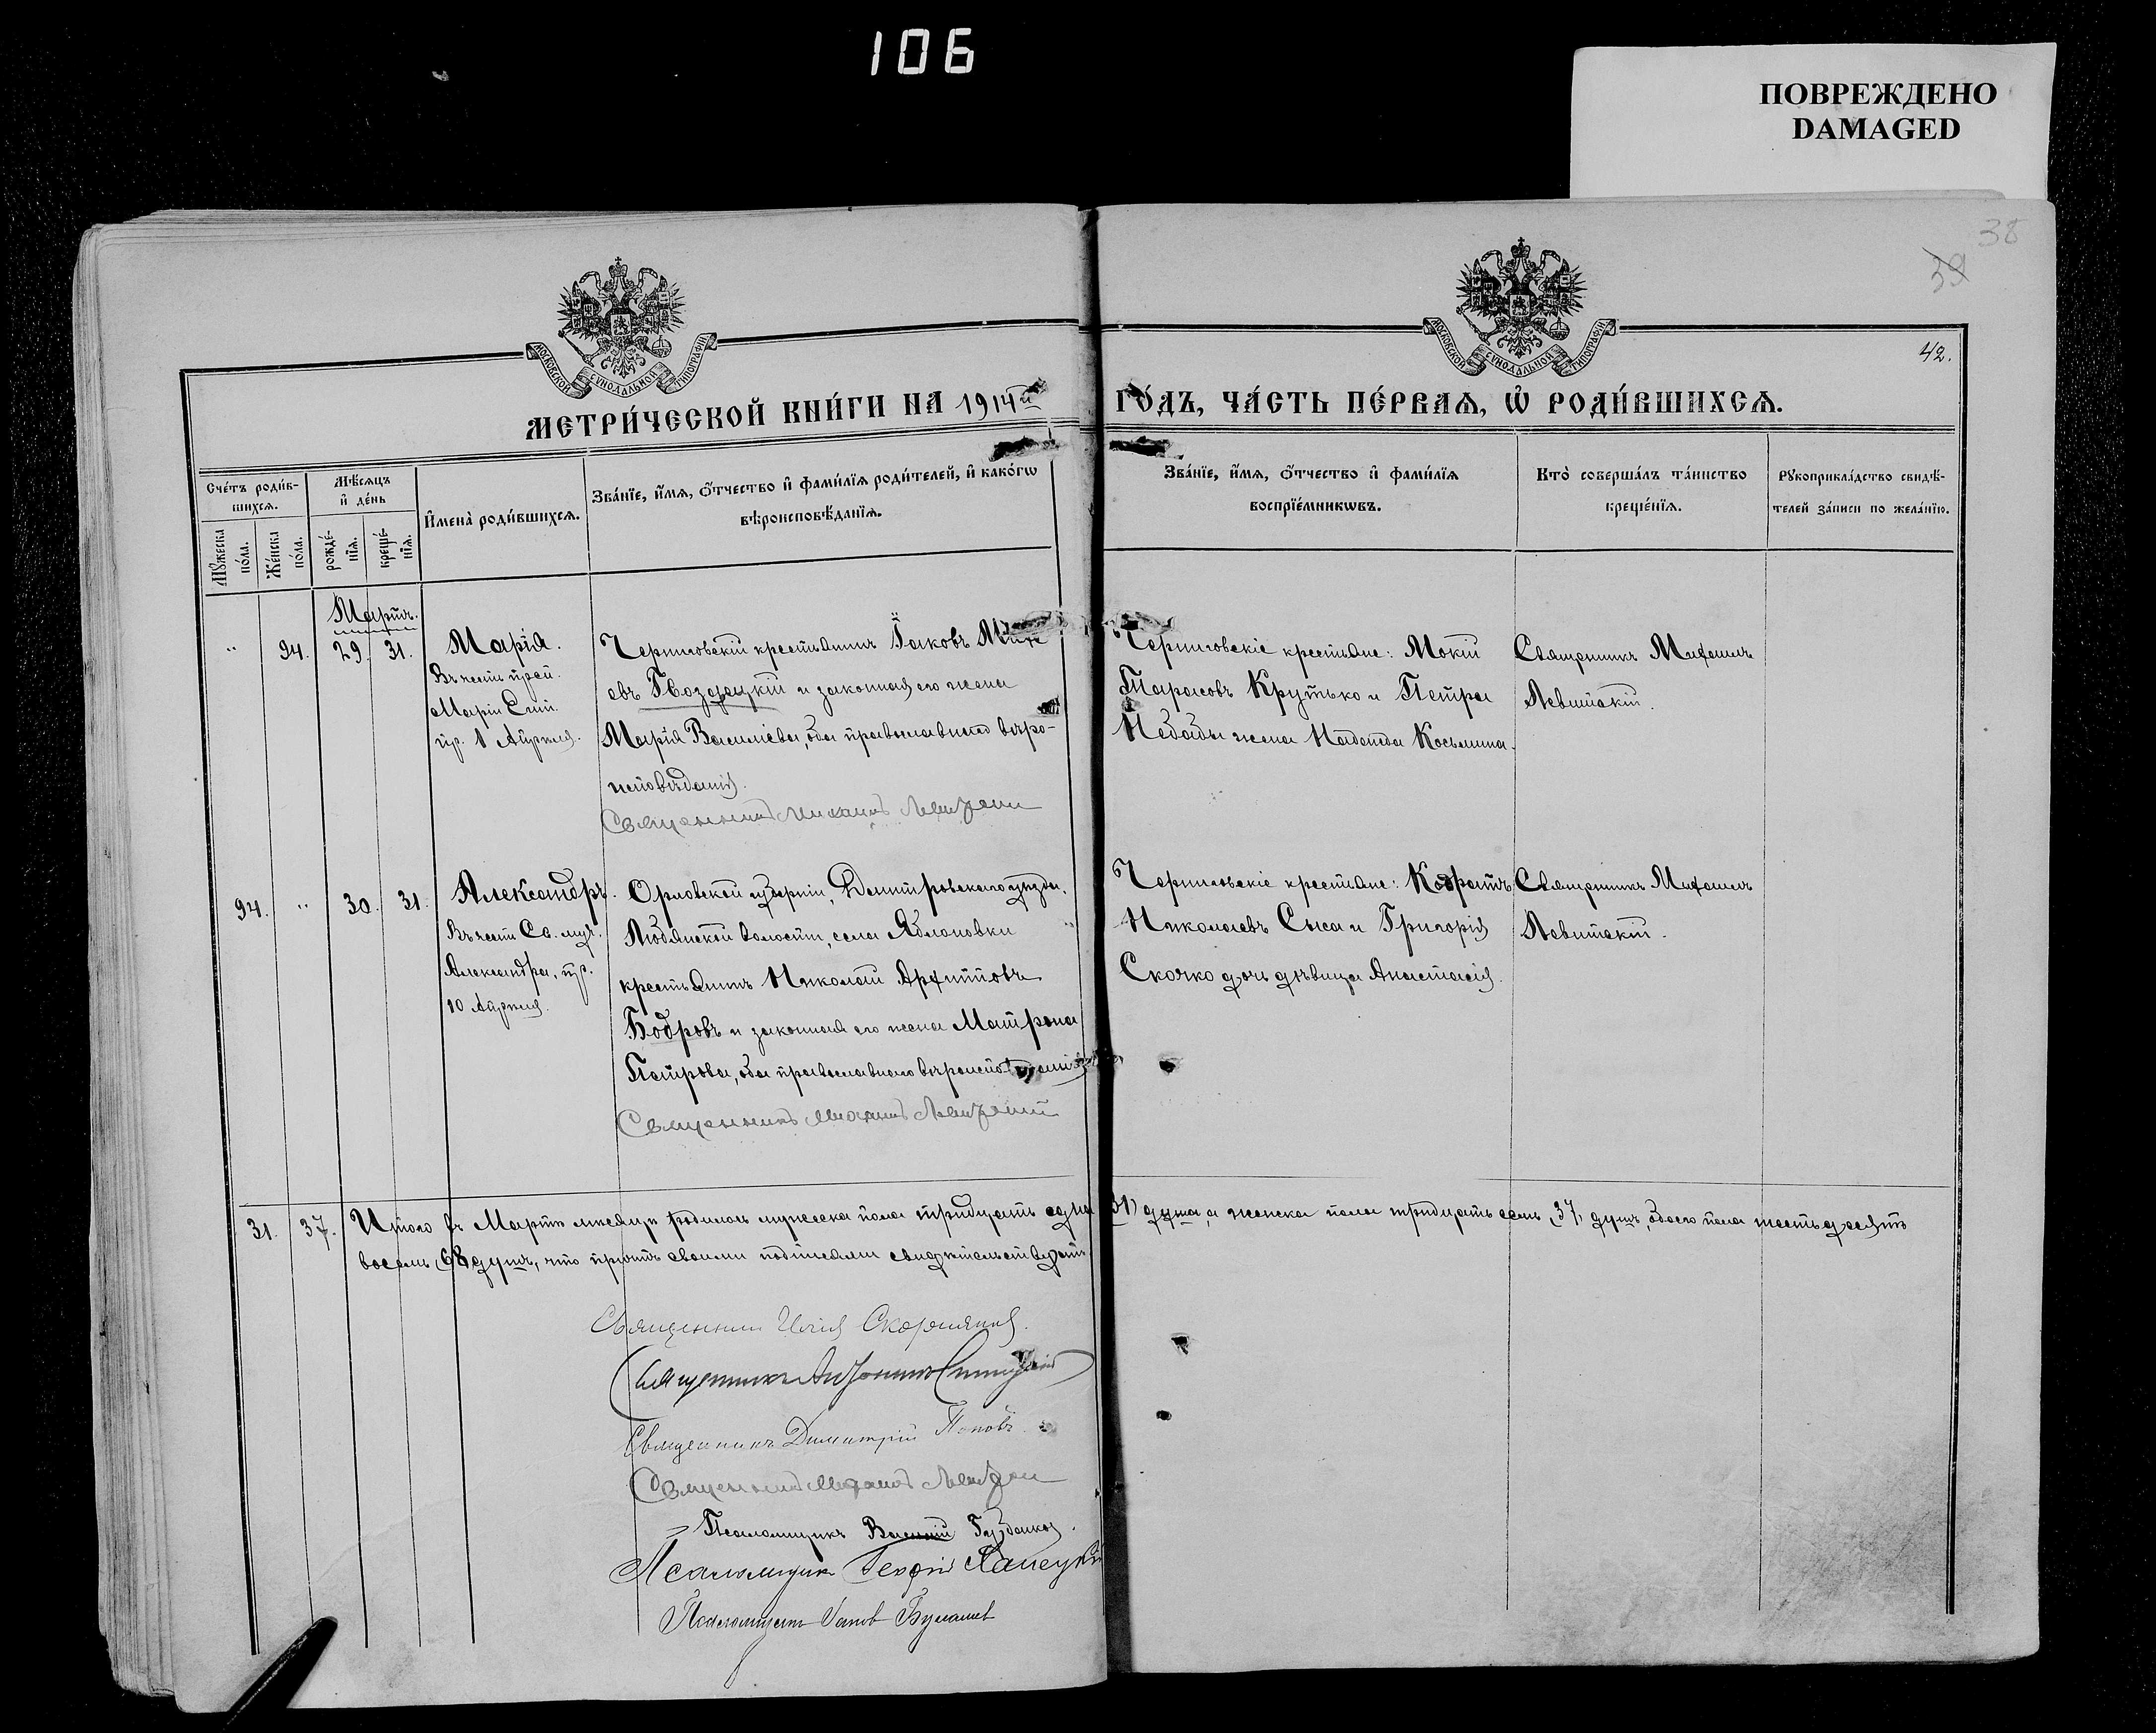 106
ПОВРЕЖДЕНО
DAMAGED
38
39
МОСКОВСКОЙ СѴНОДАЛЬНОЙ ТИПОГРАФІИ
МОСКОВСКОЙ СѴНОДАЛЬНОЙ ТИПОГРАФІИ
42.
МЕТРИ́ЧЕСКОЙ КНИ́ГИ НА 1914й ГО́ДЪ, ЧА́СТЬ ПЕ́РВАѦ, Ѡ҆ РОДИ́ВШИХСѦ.
Сче́тъ роди́в-
шихсѧ.
Мꙋ́жеска по́ла.
Же́нска по́ла.
Мѣ́сѧцъ
и҆ де́нь
рожде́-
нїѧ.
креще́-
нїѧ.
И҆мена̀ роди́вшихсѧ.
Зва́нїе, и҆́мѧ, ѻ҆́тчество и҆ фами́лїѧ роди́телей, и҆ како́гѡ
вѣроисповѣ́данїѧ.
Зва́нїе, и҆́мѧ, ѻ҆́тчество и҆ фами́лїѧ
воспрїе́мникѡвъ.
Кто̀ соверша́лъ та́инство
креще́нїѧ.
Рꙋкоприкла́дство свидѣ́-
телей за́писи по жела́нїю.
Мартъ.
" 94. 29. 31.
Марія.
Въ честь преп.
Маріи Егип.
пр. 1 Апрѣля.
Черниговскій крестьянинъ Іаковъ
евъ Гвоздецкій и законная его жена
Марія Василіева, оба православнаго вѣро-
исповѣданія.
Священникъ Михаилъ Левитскій
Черниговскіе крестьяне: Мокій
Тарасовъ Крутько и Петра
Небабы жена Надежда Косьмина.
Священникъ Михаилъ
Левитскій.
94. " 30. 31.
Александръ.
Въ честь Св. муч.
Александра, пр.
10 Апрѣля.
Орловской губерніи, Дмитровскаго уѣзда,
волости, села Яблоновки
крестьянинъ Николай
Бодровъ и законная его жена Матрона
Петрова, оба православнаго вѣроисповѣданія.
Священникъ Михаилъ Левитскій
Черниговскіе крестьяне: Кодратъ
Николаевъ Сыса и Григорія
Скочко дочь дѣвица Анастасія.
Священникъ Михаилъ
Левитскій.
31. 37. Итого въ Мартѣ мѣсяцѣ родилось мужеска пола тридцать одна (31) душа, а женска пола тридцать семь (37) душъ, обоего пола шестьдесятъ
восемь (68) душъ, что причтъ своими подписями свидѣтельствуетъ.
Священникъ Илія
Священникъ
Священникъ Димитрій Поповъ.
Священникъ Михаилъ Левитскій
Псаломщикъ Василій
Псаломщикъ Георгій
Псаломщикъ